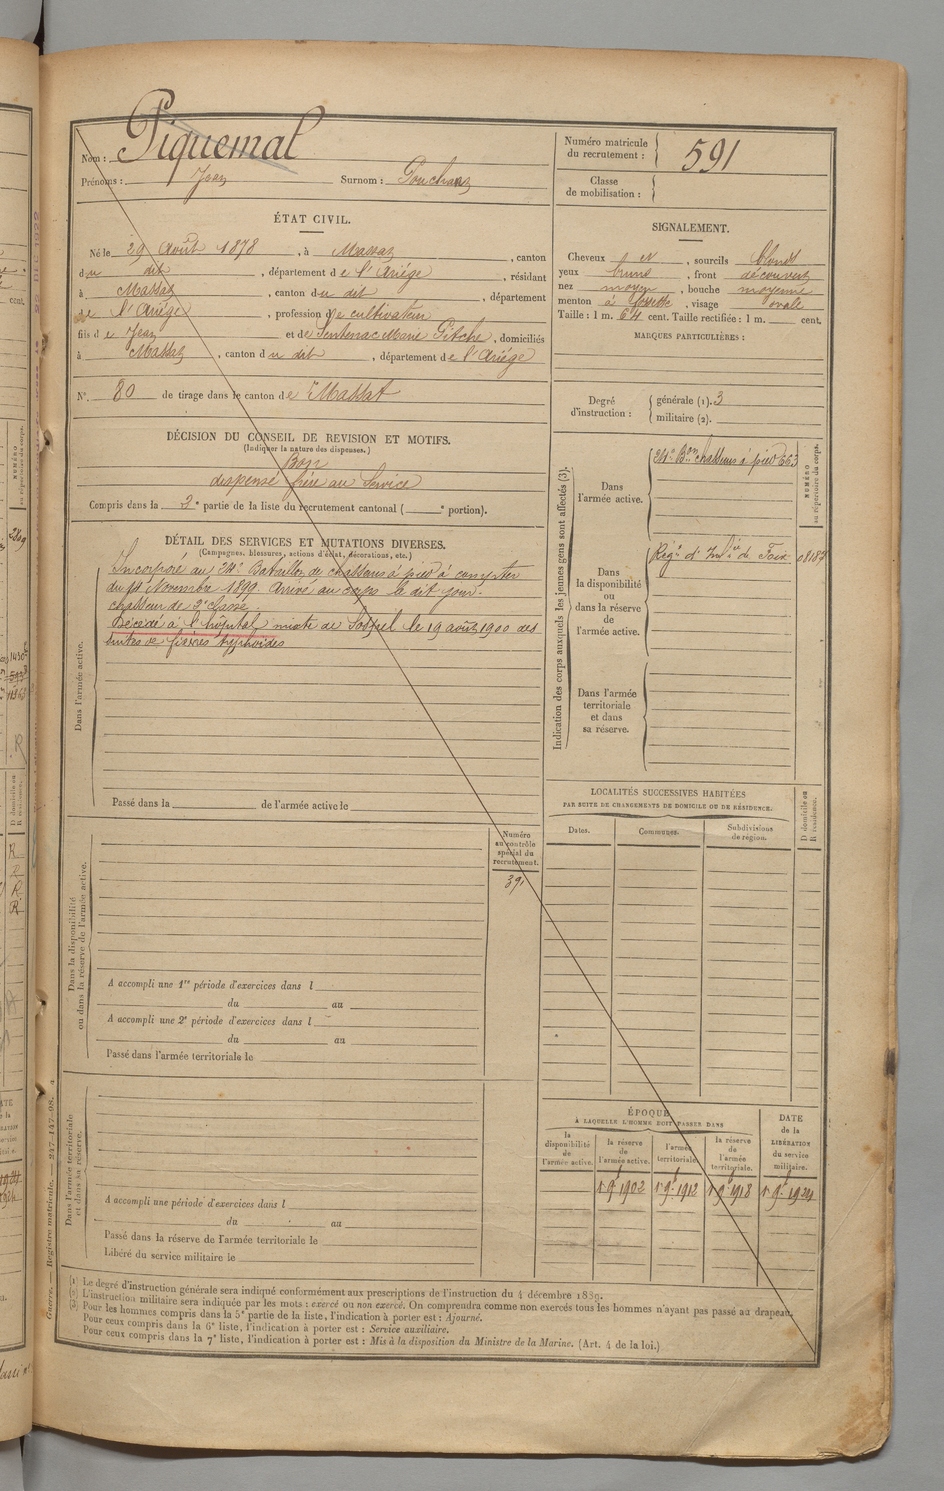 Nom : Piquemal
Prénoms : Jean Surnom : Pouchan
Numéro matricule du recrutement : 591
Classe de mobilisation :
ÉTAT CIVIL.
Né le 29 Août 1878, à Massat, canton
du dit, département de l'Ariège, résidant
à Massat, canton du dit, département
de l'Ariège, profession de cultivateur
fils de Jean et de Sentenac Marie, domiciliés
à Massat, canton du dit, département de l'Ariège
N° 80 de tirage dans le canton de Massat
SIGNALEMENT.
Cheveux et, sourcils blonds
yeux bruns, front découvert
nez moyen, bouche moyenne
menton à fossette, visage ovale
Taille : 1 m. 64 cent. Taille rectifiée : 1 m. cent.
MARQUES PARTICULIÈRES :
Degré d'instruction : générale (1). 3
militaire (2).
DÉCISION DU CONSEIL DE REVISION ET MOTIFS.
(Indiquer la nature des dispenses.)
Bon
dispensé frère au Service
Compris dans la 2e partie de la liste du recrutement cantonal ( e portion).
DÉTAIL DES SERVICES ET MUTATIONS DIVERSES.
(Campagnes, blessures, actions d'éclat, décorations, etc.)
Dans l'armée active.
Incorporé au 24e Bataillon de chasseurs à pied à compter
du 14 Novembre 1899. Arrivé au corps le dit jour.
chasseur de 2e classe.
Décédé à l'hôpital mixte de Sospel le 19 août 1900 des
suites de fièvres typhoïdes
Passé dans la de l'armée active le
Indication des corps auxquels les jeunes gens sont affectés (3).
NUMÉRO au répertoire du corps.
Dans l'armée active.
24e Bon chasseurs à pied 653
Dans la disponibilité ou dans la réserve de l'armée active.
Regt d'Infie de Foix 08187
Dans l'armée territoriale et dans sa réserve.
LOCALITÉS SUCCESSIVES HABITÉES
PAR SUITE DE CHANGEMENTS DE DOMICILE OU DE RÉSIDENCE.
Dates. Communes. Subdivisions de région. D domicile ou R résidence.
Numéro au contrôle spécial du recrutement.
391
Dans la disponibilité ou dans la réserve de l'armée active.
A accompli une 1re période d'exercices dans l
du au
A accompli une 2e période d'exercices dans l
du au
Passé dans l'armée territoriale le
Dans l'armée territoriale et dans sa réserve.
A accompli une période d'exercices dans l
du au
Passé dans la réserve de l'armée territoriale le
Libéré du service militaire le
ÉPOQUE
À LAQUELLE L'HOMME DOIT PASSER DANS
la disponibilité de l'armée active. la réserve de l'armée active. l'armée territoriale. la réserve de l'armée territoriale. DATE de la LIBÉRATION du service militaire.
1 9e 1902 1 9e 1912 1 9e 1918 1 9e 1924
(1) Le degré d'instruction générale sera indiqué conformément aux prescriptions de l'instruction du 4 décembre 1889.
(2) L'instruction militaire sera indiquée par les mots : exercé ou non exercé. On comprendra comme non exercés tous les hommes n'ayant pas passé au drapeau.
(3) Pour les hommes compris dans la 5e partie de la liste, l'indication à porter est : Ajourné.
Pour ceux compris dans la 6e liste, l'indication à porter est : Service auxiliaire.
Pour ceux compris dans la 7e liste, l'indication à porter est : Mis à la disposition du Ministre de la Marine. (Art. 4 de la loi.)
Guerre. — Registre matricule. — 347-147-98.